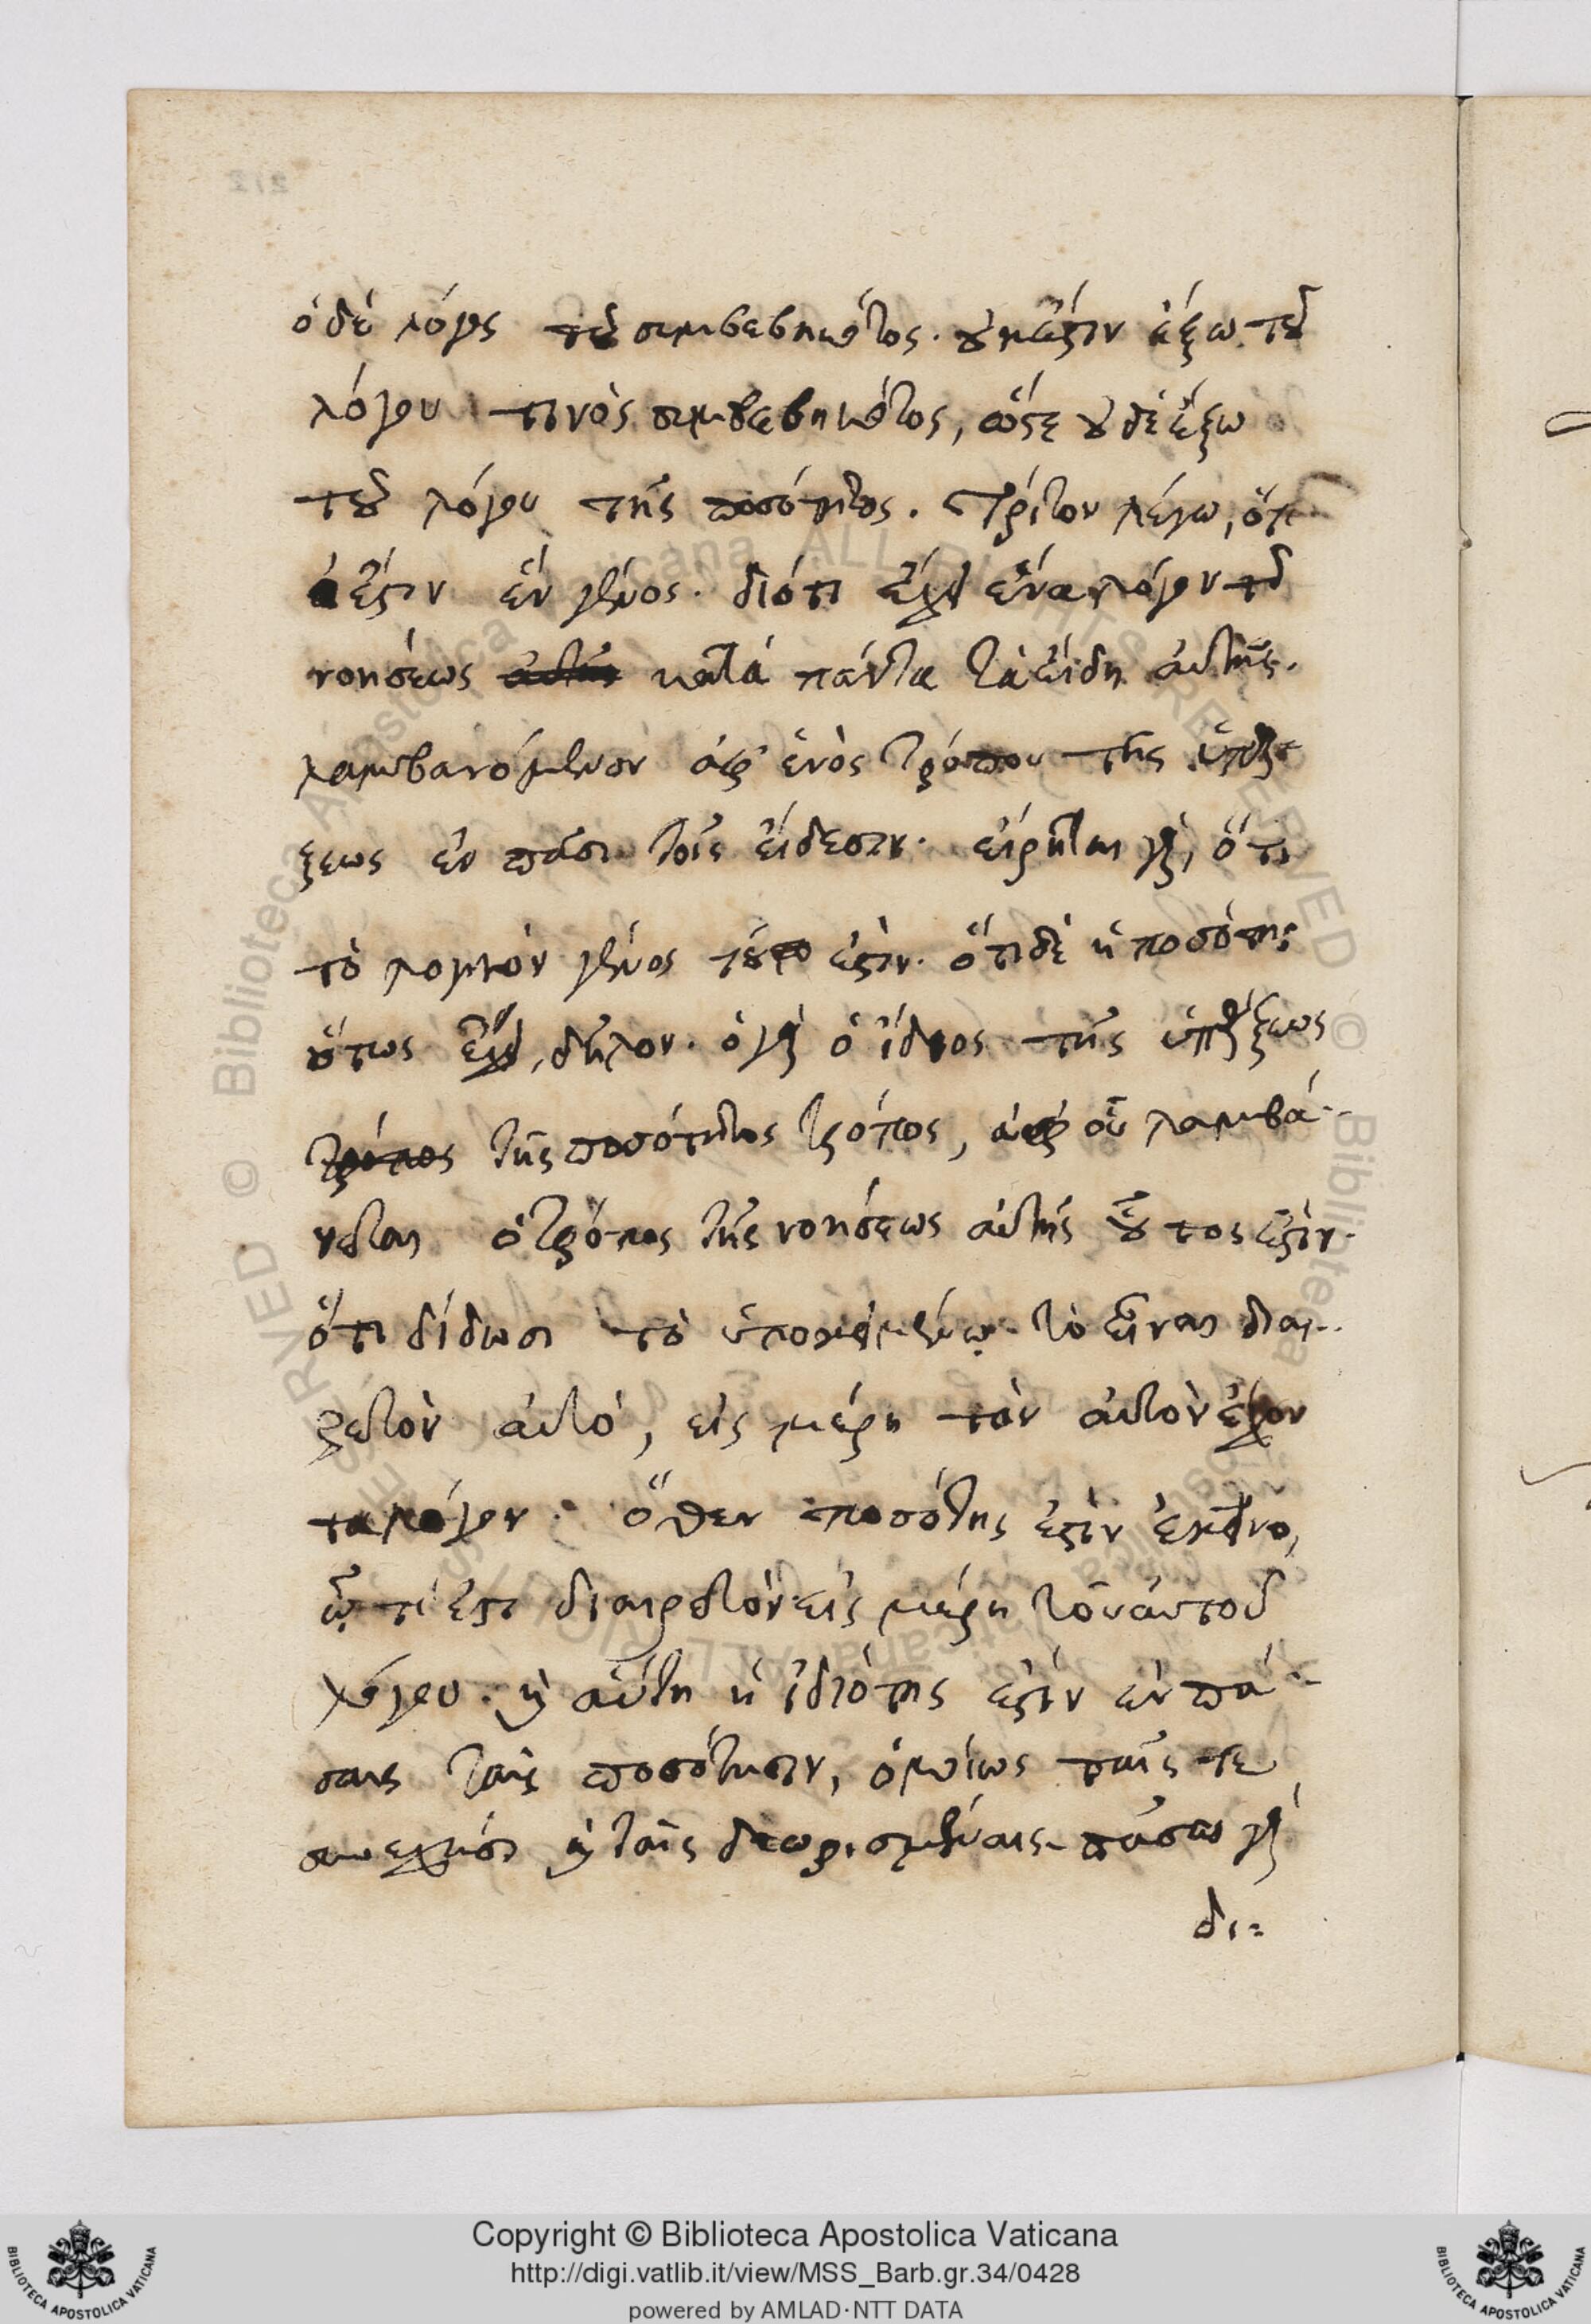 ὁ δὲ λόγος τοῦ συμβεβηκότος. οὐκ ἔστιν ἔξω τοῦ
λόγου τινὸς συμβεβηκότος, ὥστε οὐδὲ ἔξω
τοῦ λόγου τῆς ποσότητος. Τρίτον λέγω, ὅτι
ἐστιν ἓν γένος. διότι ἔχει ἕνα λόγον τῆς
νοήσεως κατὰ πάντα τὰ εἴδη αὐτῆς.
λαμβανόμενον ἀφ' ἑνὸς τρόπου τῆς ὑπάρ-
ξεως ἐν πᾶσι τοῖς εἴδεσιν. εἴρηται γὰρ, ὅτι
τὸ λογικὸν γένος τοῦτο ἐστιν. ὅτι δὲ ἡ ποσότης
οὕτως ἔχει, δῆλον. ὁ γὰρ ὁ ἴδιος τῆς ὑπάρξεως
τῆς ποσότητος τρόπος, ἀφ' οὗ λαμβά-
νεται ὁ τρόπος τῆς νοήσεως αὐτῆς οὗτος ἐστὶν.
ὅτι δίδωσι τὸ ὑποκειμένῳ τὸ εἶναι διαι-
ρετὸν αὐτὸ, εἰς μέρη τὸν αὐτὸν ἔχον
τα λόγον. ὅθεν ποσότης ἐστὶν ἐκεῖνο,
ᾧ τὶ ἐστι διαιρετὸν εἰς μέρη τοῦ αὐτοῦ
λόγου. καὶ αὕτη ἡ ἰδιότης ἐστὶν ἐν πά-
σαις ταῖς ποσότησιν, ὁμοίως ταῖς τε
συνεχέσι καὶ ταῖς διωρισμέναις. πᾶσαι γὰρ
δι=
Copyright © Biblioteca Apostolica Vaticana
http://digi.vatlib.it/view/MSS_Barb.gr.34/0428
powered by AMLAD·NTT DATA